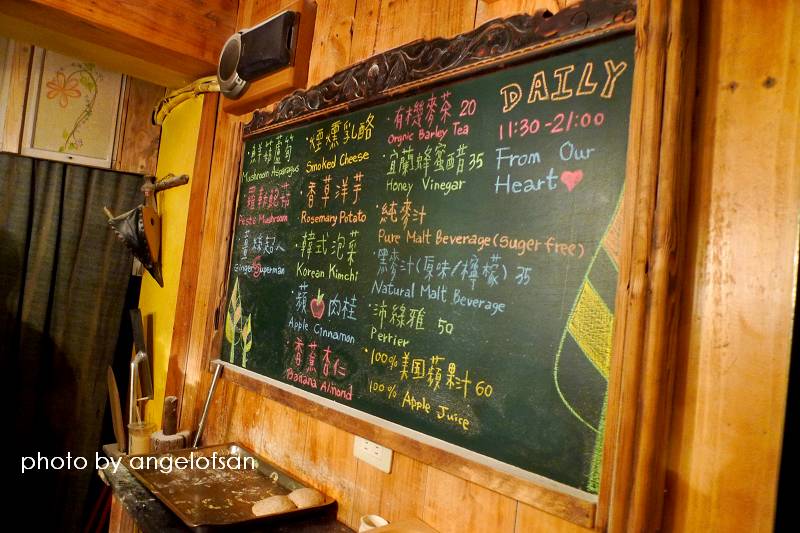 DAILY
11:30-21:00
From Our
Heart
鮮菇蘆筍
Mushroom Asparagus
Peste Mushroom
Ginger Superman
煙燻乳酪
Smoked Cheese
香草洋芋
Rosemary Potato
韓式泡菜
Korean Kimchi
蘋 肉桂
Apple Cinnamon
香蕉杏仁
Banana Almond
有機麥茶 20
Orgnic Barley Tea
宜蘭蜂蜜醋 35
Honey Vinegar
純麥汁
Pure Malt Beverage (Suger free)
黑麥汁(原味/檸檬) 35
Natural Malt Beverage
沛綠雅 50
Perrier
100%美国蘋果汁 60
100% Apple Juice
photo by angelofsan